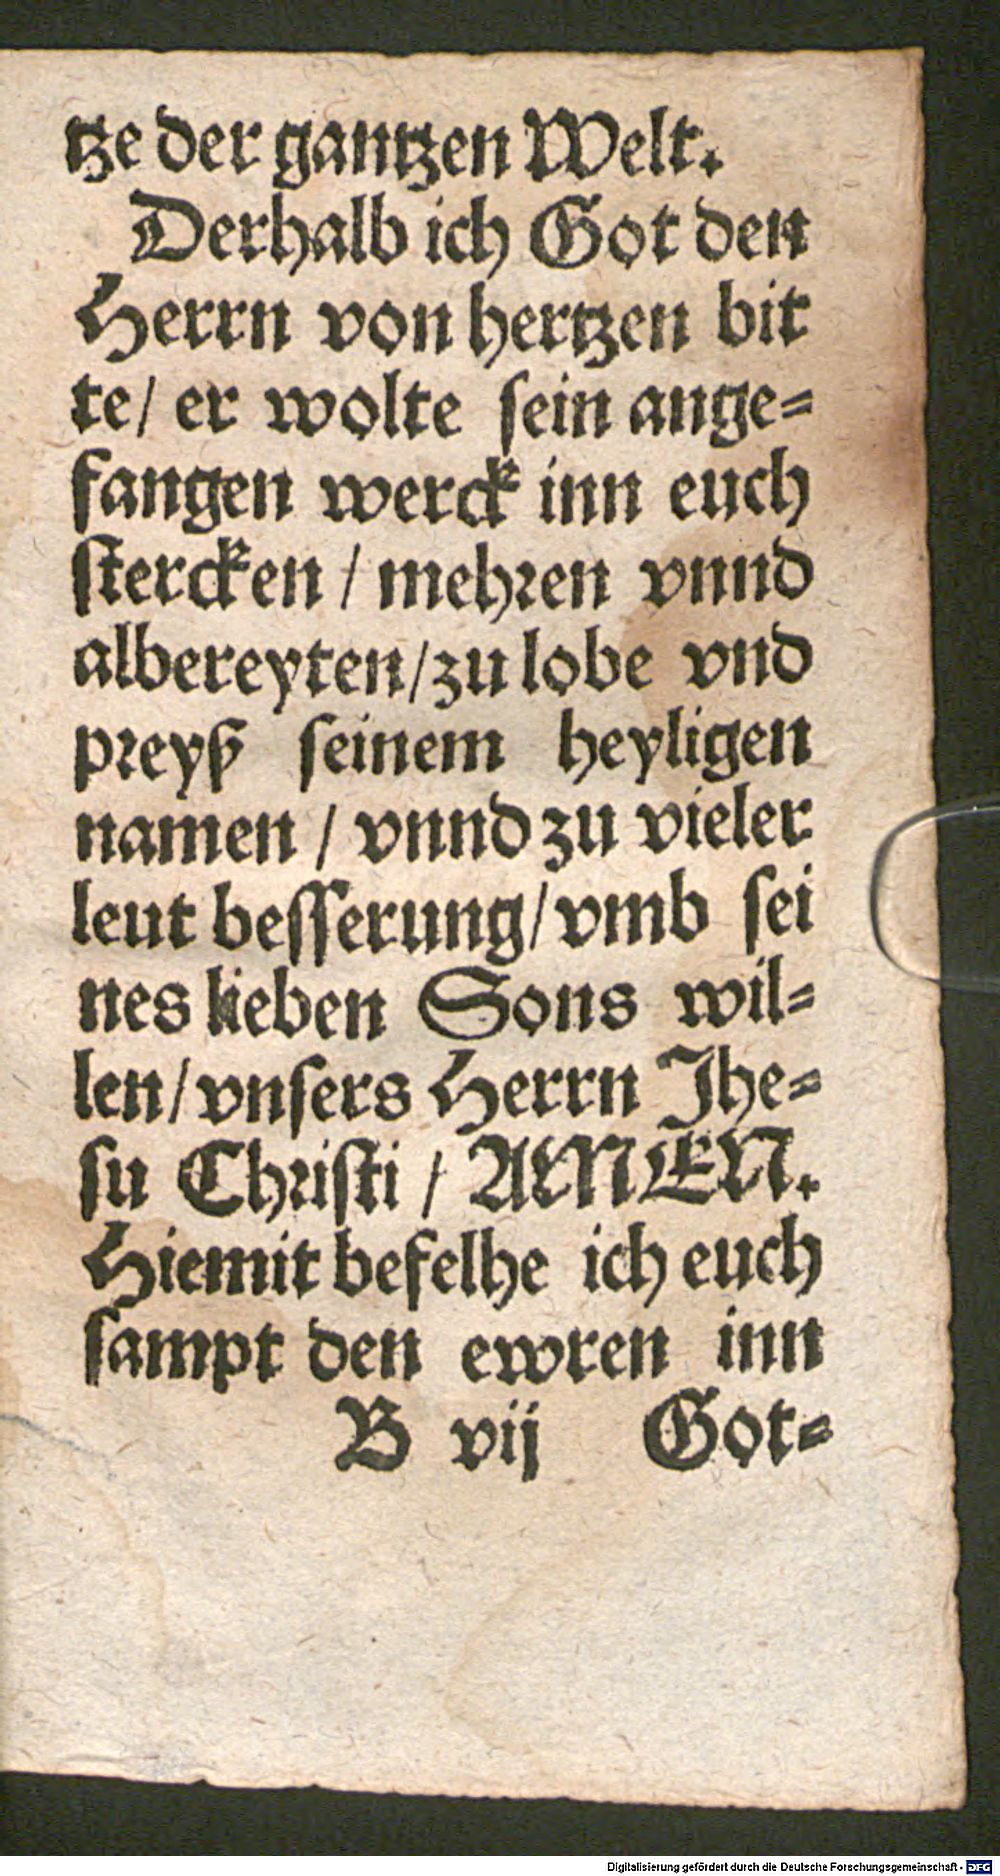 tze der gantzen Welt.
Derhalb ich Got den
Herrn von hertzen bit
te/ er wolte sein ange=
fangen werck inn euch
stercken / mehren vnnd
albereyten/zu lobe vnd
preyß seinem heyligen
namen / vnnd zu vieler
leut besserung/vmb sei
nes lieben Sons wil=
len/vnsers Herrn Jhe=
su Christi / AMEN.
Hiemit befelhe ich euch
sampt den ewren inn
B vij Got=
Digitalisierung gefördert durch die Deutsche Forschungsgemeinschaft - DFG